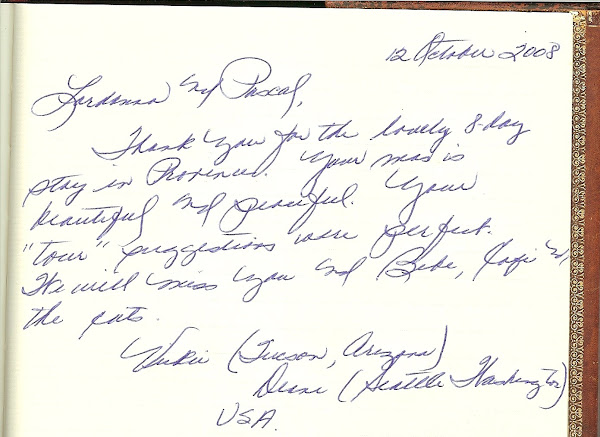 12 October 2008
and Pascal,
Thank you for the lovely 8-day
stay in Provence. Your mas is
beautiful and peaceful. Your
"tour" suggestions were perfect.
We will miss you and Bebe, and
the cats.
Vickie (Tucson, Arizona)
Diane (Seattle Washington)
USA.